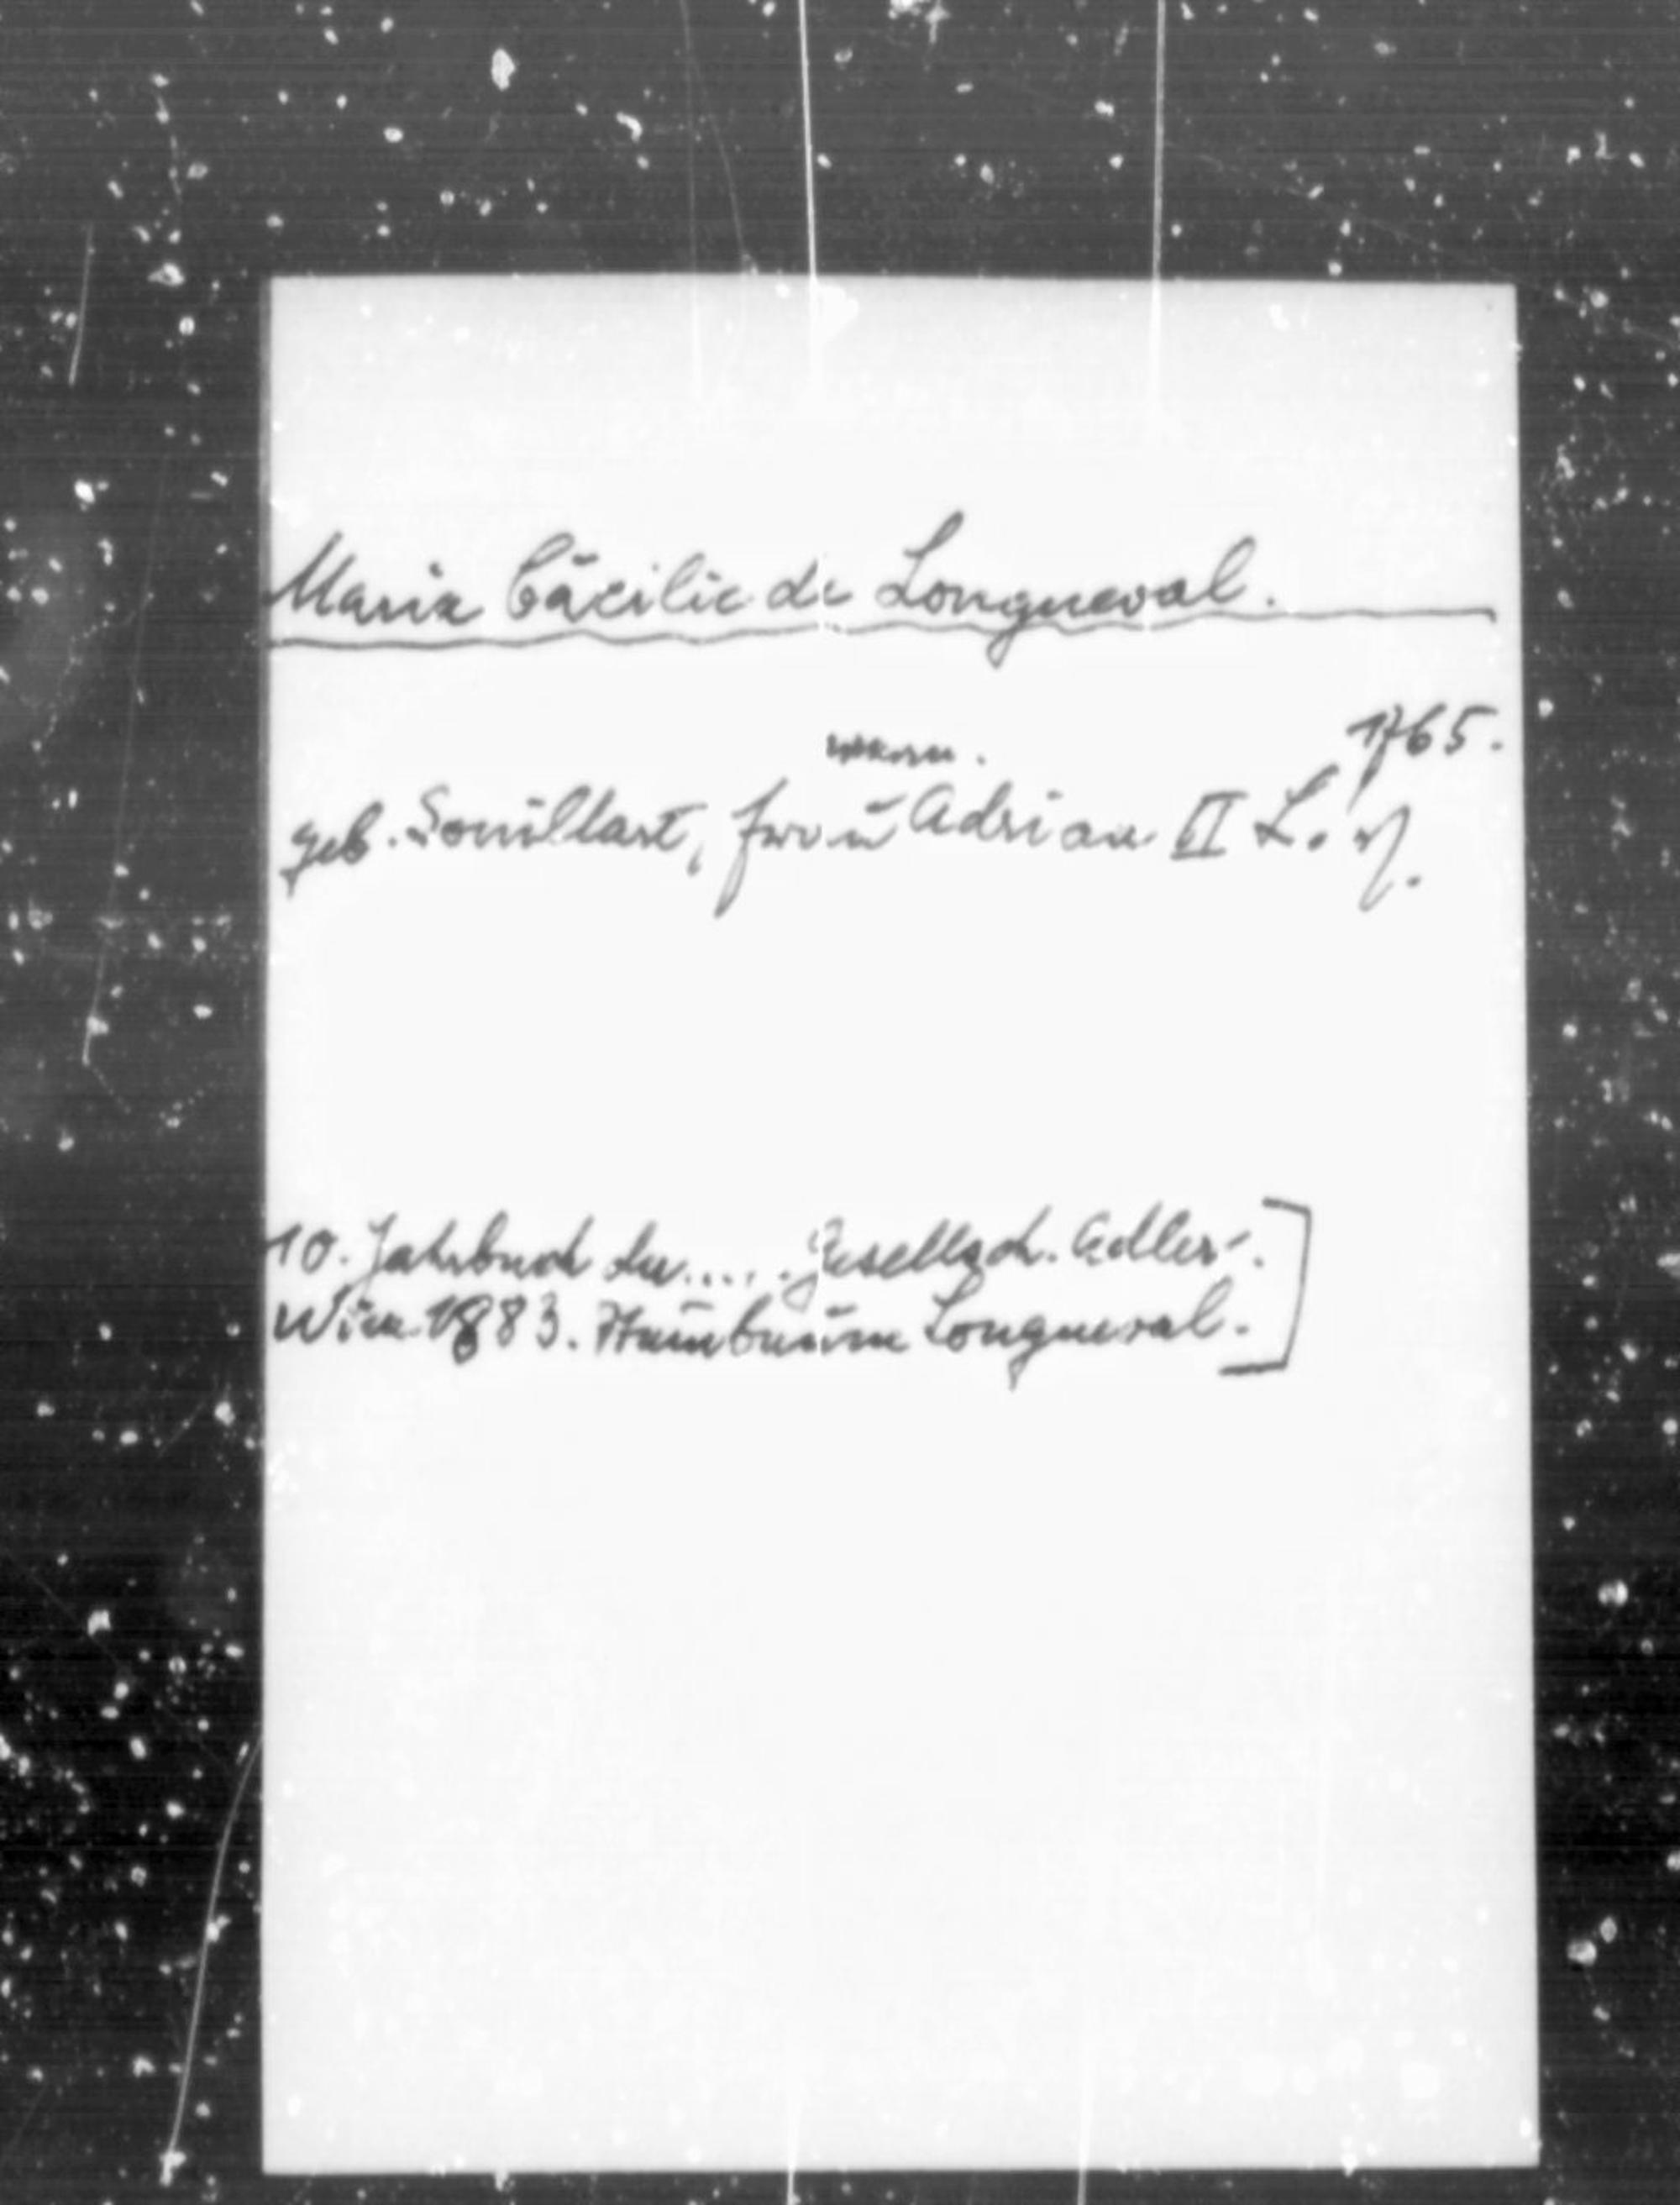 Maria Cäcilie de Longueval.
1765.
geb. Souillart, Frau Adrian II L.
10. Jahrbuch der..... Gesellsch. Adler.
Wien 1883. Stammbaum Longueval.